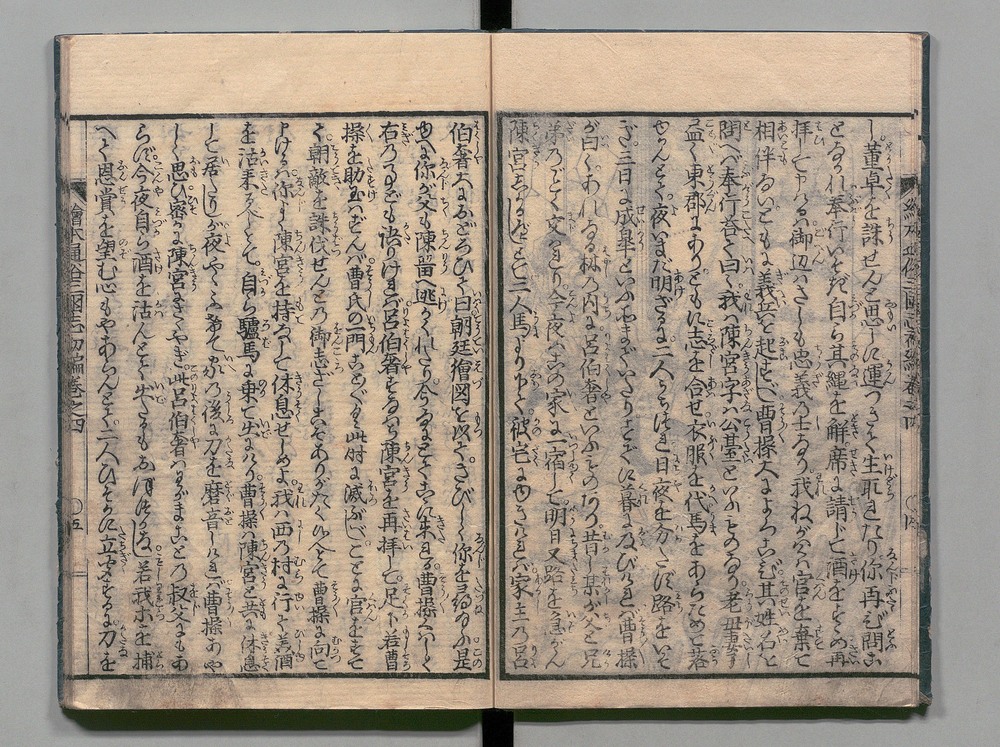 し董卓を誅せんと思しに運つきて生取きたり你再び問ふ
となかれ奉行いそぎ自ら其縄を解席に請じて酒をとゝめ再
拝して申ける御辺はさしも忠義の士なり我ねがはくハ官を棄て
相伴ふいともに義兵を起すべし曹操大によろこび其姓名を
問へバ奉行答て曰く我ハ陳宮字ハ公基といふものなり老母妻子
盃く東郡にありともに志を合せ衣服を代馬をあらためて落
ゆかんとて夜いまた明ざるに二人うちつれ日夜を分たず路をいそ
ぎ三日に成皐といふ所まていたりすでに暮に及びけれバ曹操
が曰くあれなる林の内に呂伯奢といふものあり昔し某が父と兄
弟のごとく交をり今夜ハ此の家に一宿して明日又路を急がん
陳宮しかるべしとて二人馬より下て彼宅にゆきけれバ家主の呂
伯奢大におどろひて曰朝廷繪図を以てきびしく你を尋る是
ゆへに你が父も陳留へ逃かくれたり今なにとしてこゝに来る曹操かく
右のなどもを語りけれバ呂伯奢きゝて陳宮を再拝して足下若曹
操を助玉はずんバ曹氏の一門ことごとく此時に滅ぶべしことに官をすて
て朝敵を誅伐せんとの御志ざしこそありがたく候へとて曹操に向て
いけるハ你ハ陳宮を持なして休息せしめよ我ハ西の村に行て美酒
を沽来らんとて自ら驢馬に乗て出にけり曹操ハ陳宮と共に休息
して居たりしが夜やうやう希て家の後に刀を磨音しけれバ曹操あや
しく思ひ密に陳宮にさゝやき此呂伯奢ハわがまことの叔父にもあ
らず今夜自ら酒を沽んとて出たるもおぼつかなし若我ホを捕
へて恩賞を望む心もやあらんとて二人ひそかに立聞するに刀を
繪本通俗三國志初編巻之四
繪本通俗三國志初編巻之四
〇五